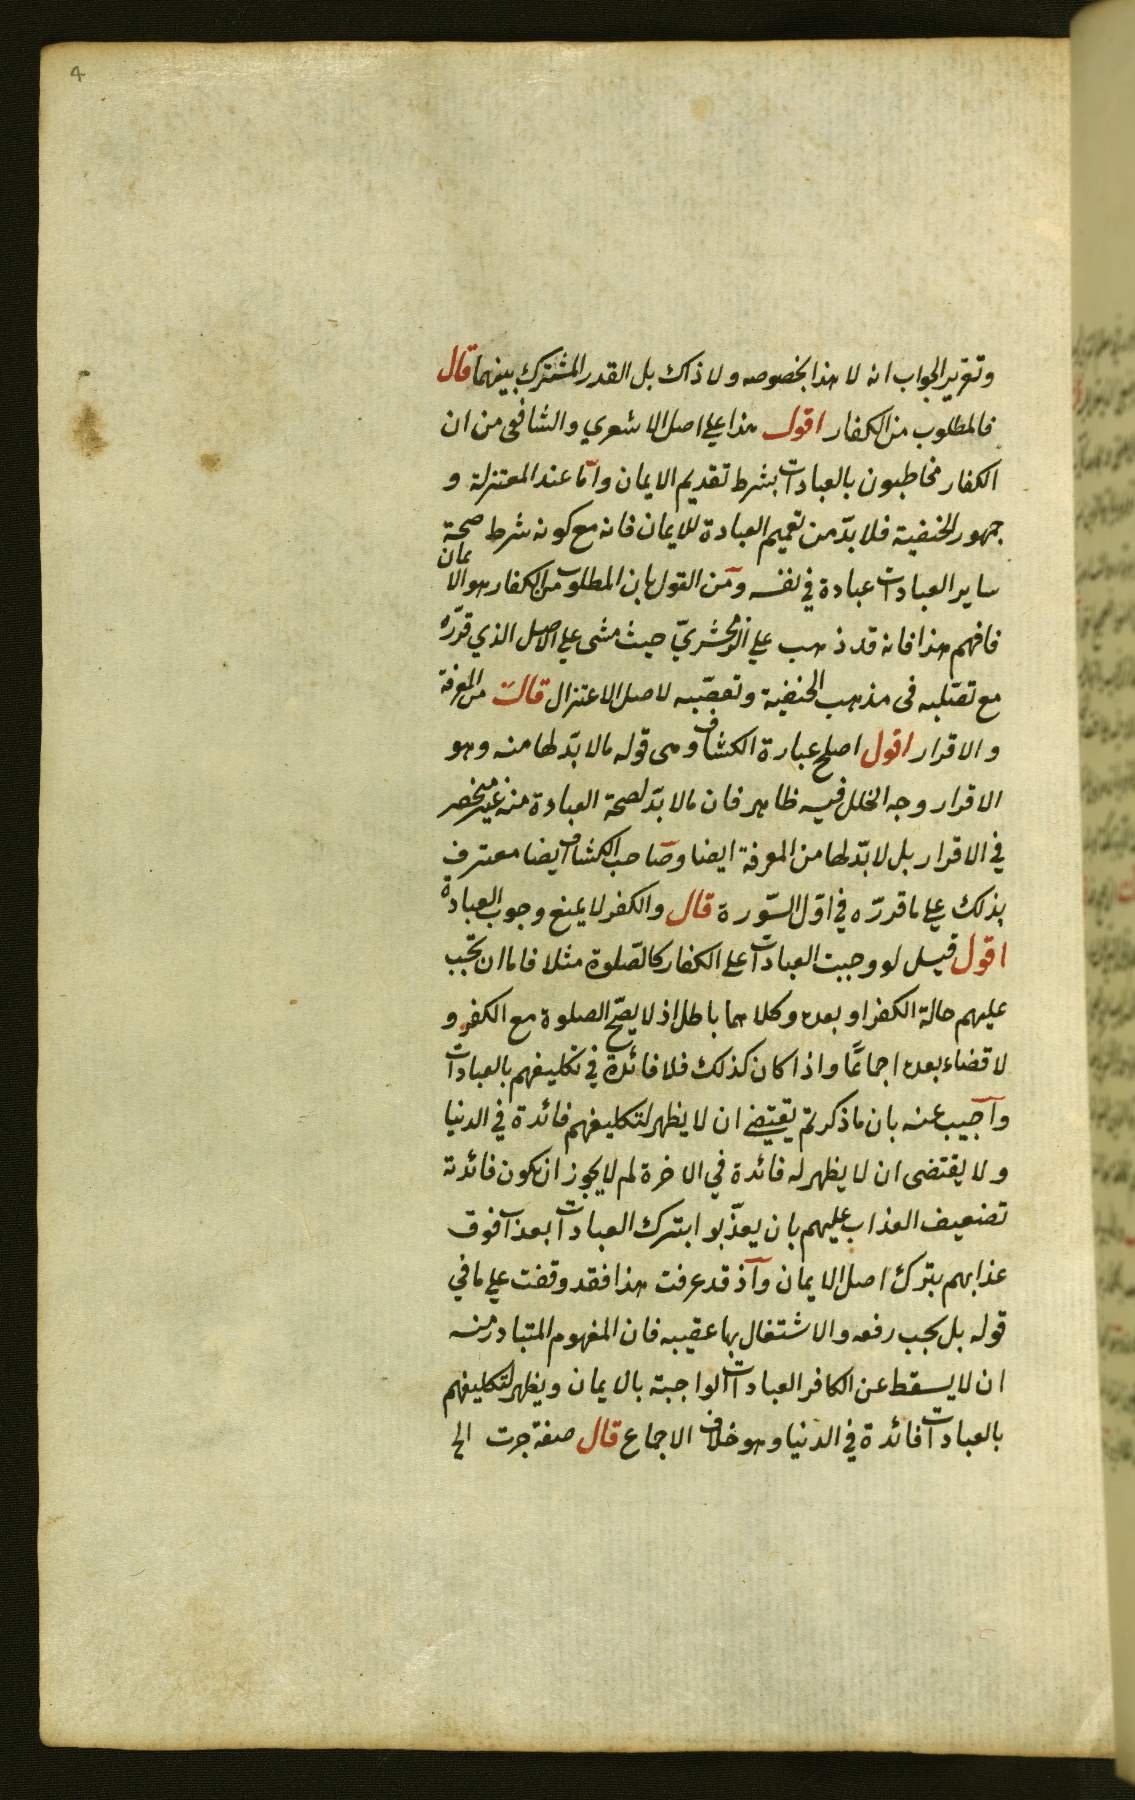 4
وتقرير الجواب انه لا هذا بخصوصه ولا ذاك بل القدر المشترك بينهما قال
فالمطلوب من الكفار اقول هذا على اصل الاشعري والشافعى من ان
الكفار مخاطبون بالعبادات بشرط تقديم الايمان وامّا عند المعتزلة و
جمهور الحنفية فلا بدّ من تعميم العبادة للايمان فانه مع كونه شرط صحة
ساير العبادات عبادة في نفسه ومن القول بان المطلوب من الكفار هو الايمان
فافهم هذا فانه قد ذهب على الزمخشريّ حيث مشى على الاصل الذي قرّره
مع تصلّبه فى مذهب الحنفية وتعصّبه لاصل الاعتزال قال من المعرفة
والاقرار اقول اصلح عبارة الكشاف وهى قوله مالا بدّ لها منه وهو
الاقرار وجه الخلل فيه ظاهر فان مالا بدّ لصحة العبادة منه غير منحصر
في الاقرار بل لا بدّ لها من المعرفة ايضا وصاحب الكشاف ايضا معترف
بذلك على ما قررّه في اوّل السّورة قال والكفر لا يمنع وجوب العبادة
اقول قيل لو وجبت العبادات على الكفار كالصّلوة مثلا فاما ان تجب
عليهم حالة الكفر او بعده وكلاهما باطل اذ لا يصّح الصلوة مع الكفر و
لا قضاء بعده اجماعًا واذا كان كذلك فلا فائدة في تكليفهم بالعبادات
واجيب عنه بان ما ذكرتم يقتضي ان لا يظهر لتكليفهم فائدة في الدنيا
ولا يقتضى ان لا يظهر له فائدة في الاخرة لم لا يجوز ان يكون فائدته
تضعيف العذاب عليهم بان يعذّبوا بترك العبادات بعذاب فوق
عذابهم بترك اصل الايمان واذ قد عرفت هذا فقد وقفت على ما في
قوله بل يجب رفعه والاشتغال بها عقيبه فان المفهوم المتبادر منه
ان لا يسقط عن الكافر العبادات الواجبة بالايمان ويظهر لتكليفهم
بالعبادات فائدة في الدنيا وهو خلاف الاجماع قال صفة جرت الخ